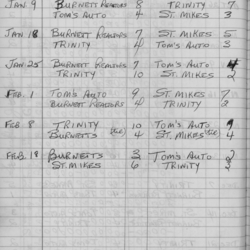 JAN 9 BURNETT REMOVERS 8 TRINITY 7
TOM'S AUTO 4 ST. MIKES 3
JAN 18 BURNETT 7 ST. MIKES 5
TRINITY 4 TOM'S AUTO 3
JAN 25 BURNETT 7 TOM'S AUTO 4
TRINITY 10 ST. MIKES 2
FEB. 1 TOM'S AUTO 9 ST. MIKES 7
BURNETT 4 TRINITY 2
FEB 8 TRINITY 10 TOM'S AUTO 9
BURNETTS 4 ST. MIKES 4
FEB. 18 BURNETTS 3 TOM'S AUTO 2
ST. MIKES 6 TRINITY 2